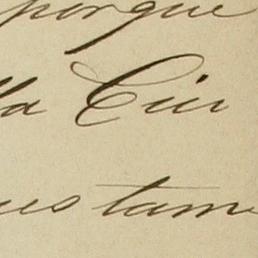 porque
la Ciu
us tam